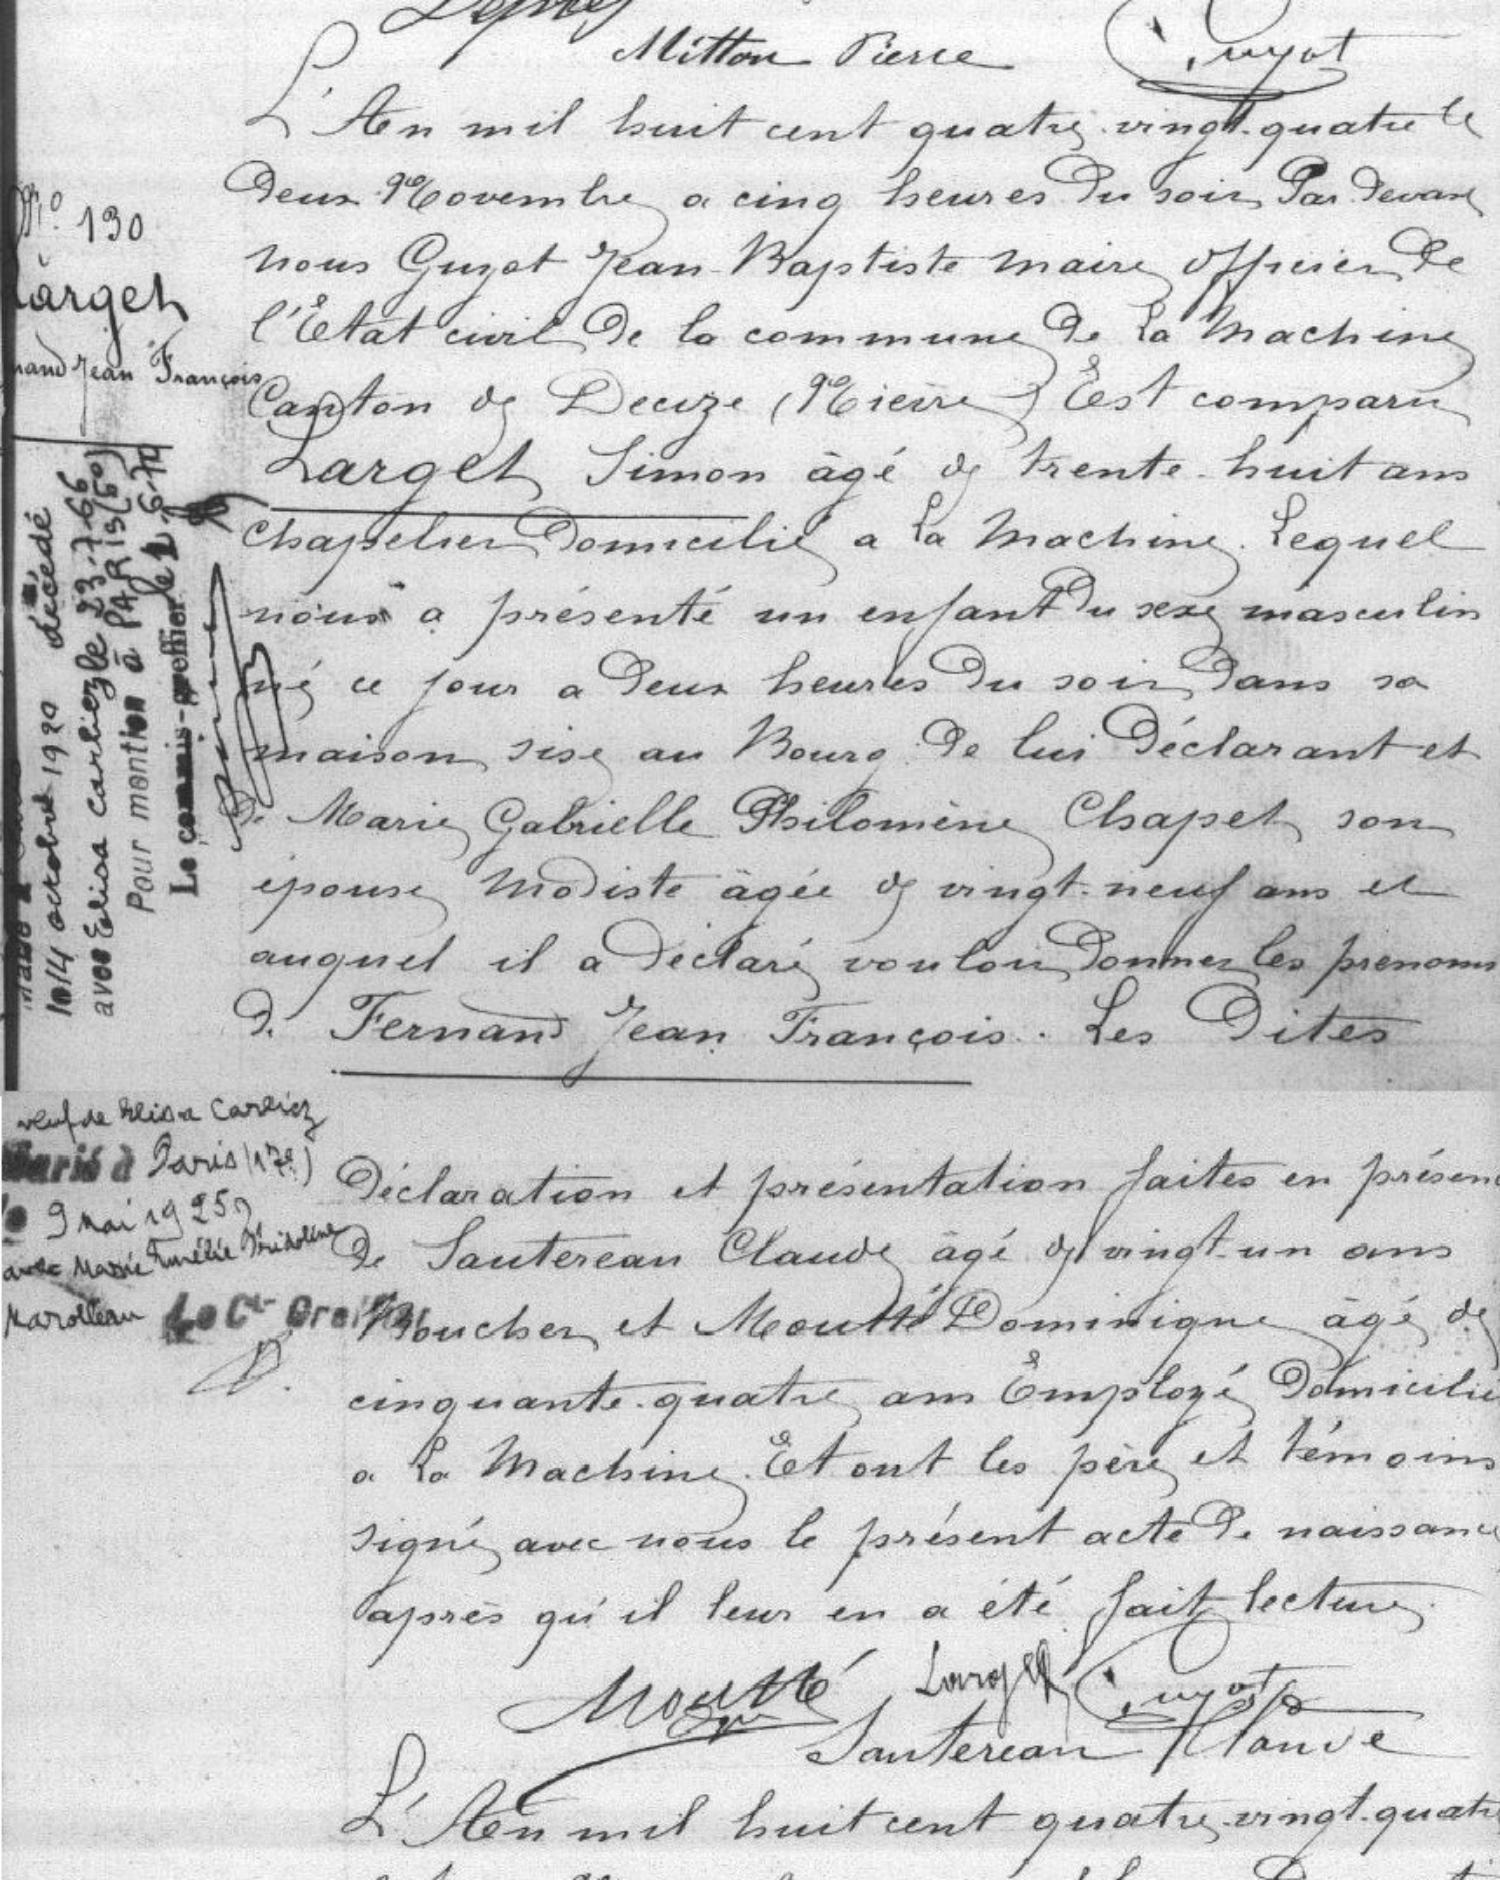 Mitton Pierre Guyot
L'An mil huit cent quatre-vingt-quatre le
deux Novembre a cinq heures du soir Par devant
nous Guyot Jean-Baptiste maire officier de
l'Etat civil de la commune de La Machine
Canton de Decize (Nièvre) Est comparu
Larget Simon âgé de trente-huit ans
chapelier domicilié a La Machine. Lequel
nous a présenté un enfant du sexe masculin
né ce jour a deux heures du soir dans sa
maison sise au Bourg de lui déclarant et
de Marie Gabrielle Philomène Chapet son
épouse modiste âgée de vingt-neuf ans et
auquel il a déclaré vouloir donner les prenoms
de Fernand Jean François. Les dites
N° 130
Larget
nand Jean François
le 14 octobre 1920 décédé
avec Elisa Carliez le 23-7-66
Pour mention à PARIS
Le commis-greffier
veuf de Elisa Carliez
Marié à Paris (17e)
le 9 mai 1925
avec Marie
Marolleau Le Cis Greffier
Déclaration et présentation faites en présen
de Sautereau Claude âgé de vingt-un ans
Boucher et Moutté Dominique âgé de
cinquante-quatre ans Employé Domicilié
a La Machine. Et ont les père et témoins
signé avec nous le présent acte de naissance
après qu'il leur en a été fait lecture.
Moutté Larget Guyot
Sautereau Claude
L'An mil huit cent quatre-vingt-quatre